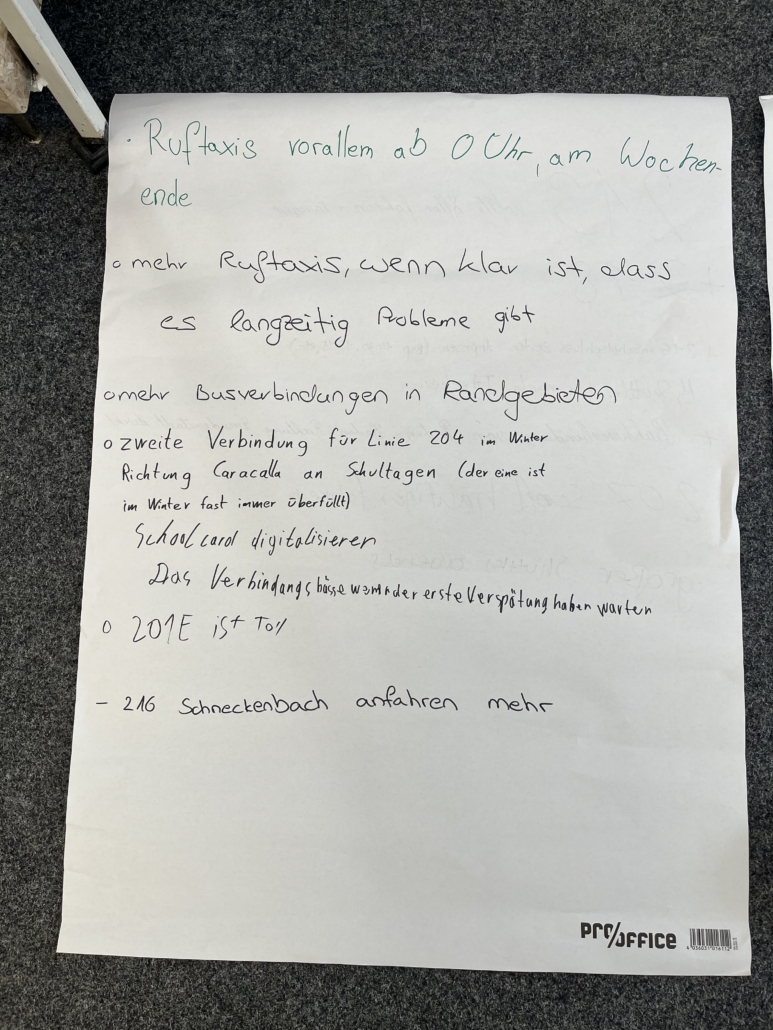 · Ruftaxis vorallem ab 0 Uhr, am Wochen-
ende
o mehr Ruftaxis, wenn klar ist, dass
es langzeitig Probleme gibt
o mehr Busverbindungen in Randgebieten
o zweite Verbindung für Linie 204 im Winter
Richtung Caracalla an Schultagen (der eine ist
im Winter fast immer überfüllt)
Schoolcard digitalisieren
Das Verbindungsbüsse wenn der erste Verspätung haben warten
o 201E ist Toll
- 216 Schneckenbach anfahren mehr
PRO/OFFICE